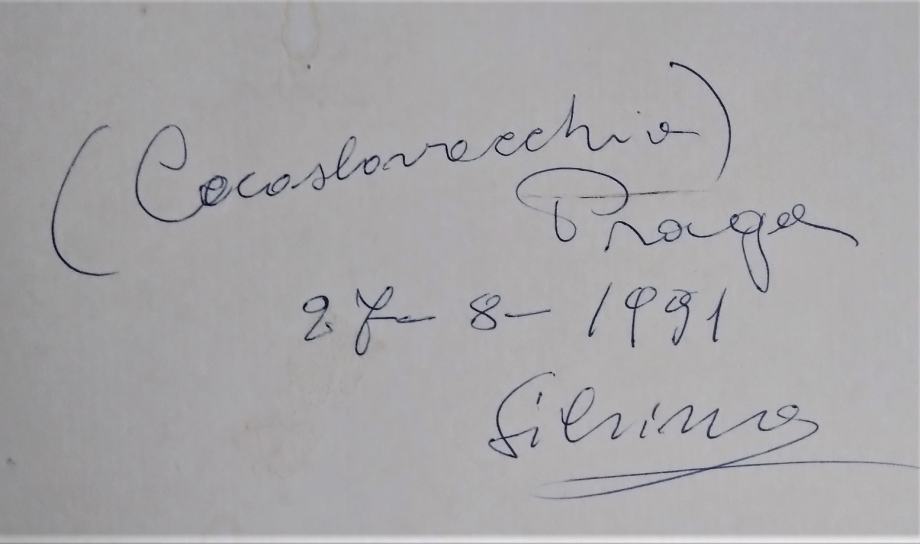 (Cecoslovacchia)
Praga
27-8-1991
Silvina